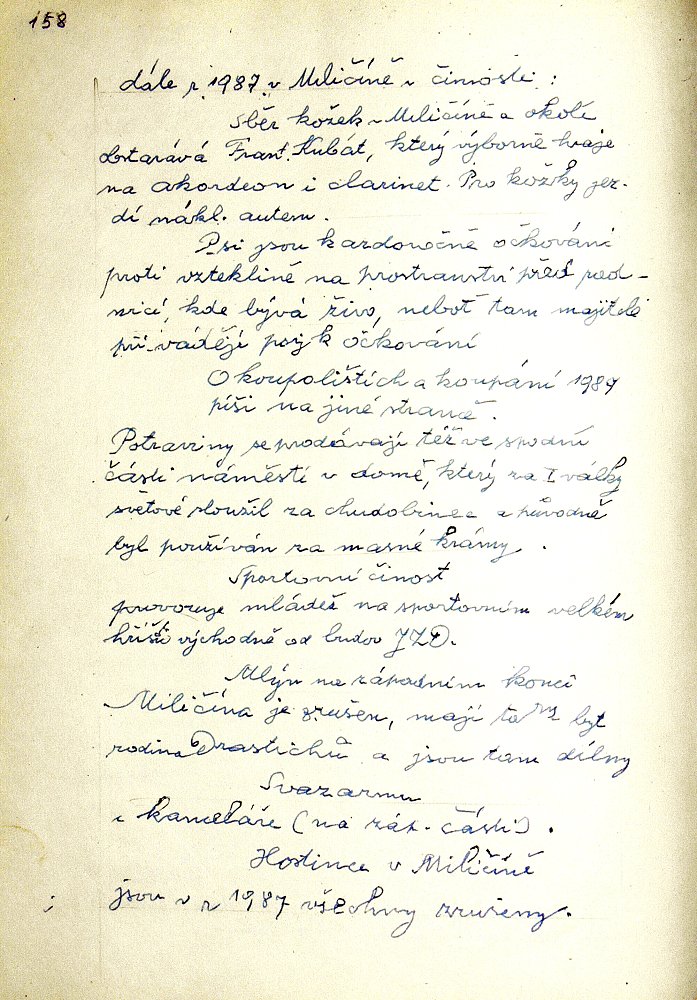 158
dále r. 1987 v Miličíně v činnosti :
Sběr kožek v Miličíně a okolí
obstarává Frant. Kubát, který výborně hraje
na akordeon i clarinet. Pro kožky jez-
dí nákl. autem.
Psi jsou každoročně očkováni
proti vzteklině na prostranství před rad-
nicí, kde bývá živo, neboť tam majitelé
přivádějí psy k očkování
O koupolištích a koupání 1989
píši na jiné straně.
Potraviny se prodávají též ve spodní
části náměstí v domě, který za I války
světové sloužil za chudobinec a původně
byl používán za masné krámy.
Sportovní činost
provozuje mládež na sportovním velkém
hřišti východně od budov JZD.
Mlýn na západním konci
Miličína je zrušen, mají tam byt
rodina Drastichů a jsou tam dílny
Svazarmu
i kanceláře (na záp. části).
Hostince v Miličíně
jsou v r 1987 všechny zrušeny.